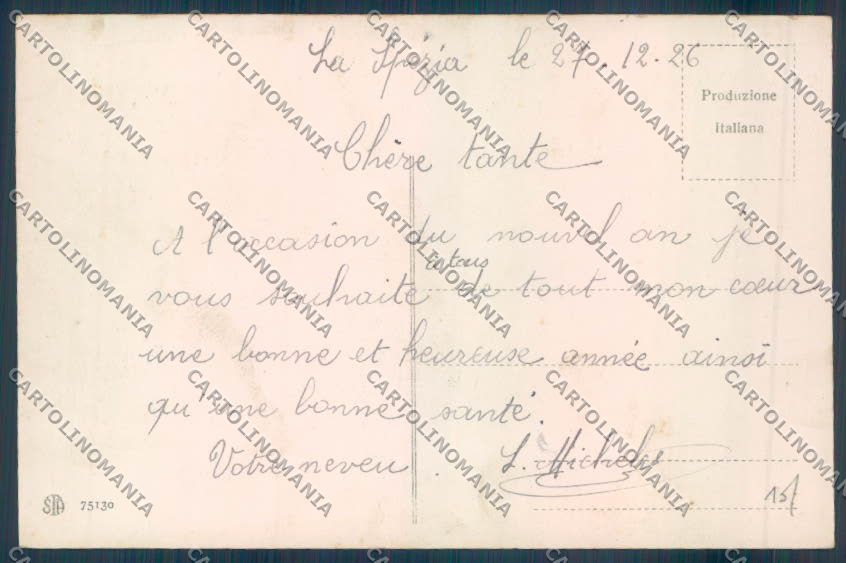 La Spézia le 27.12.26
Produzione
Italiana
Chère tante
A l'occasion du nouvel an je
à tous
vous souhaite de tout mon cœur
une bonne et heureuse année ainsi
qu'une bonne santé.
Votre neveu
75130
CARTOLINOMANIA